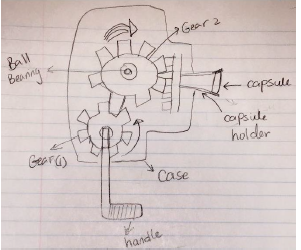 Gear 2
Ball
Bearing
capsule
capsule
holder
Gear(1)
Case
handle